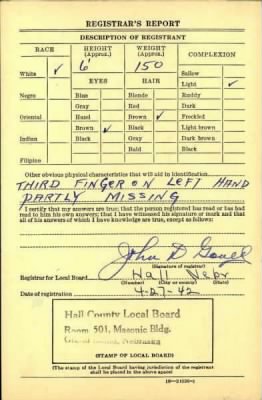 REGISTRAR'S REPORT
DESCRIPTION OF REGISTRANT
RACE HEIGHT (Approx.) WEIGHT (Approx.) COMPLEXION
White ✓ 6' 150 Sallow
EYES HAIR Light ✓
Negro Blue Blonde Ruddy
Gray Red Dark
Oriental Hazel Brown ✓ Freckled
Brown ✓ Black Light brown
Indian Black Gray Dark brown
Bald Black
Filipino
Other obvious physical characteristics that will aid in identification
THIRD FINGER ON LEFT HAND
PARTLY MISSING
I certify that my answers are true; that the person registered has read or has had
read to him his own answers; that I have witnessed his signature or mark and that
all of his answers of which I have knowledge are true, except as follows:
John D
(Signature of registrar)
Registrar for Local Board Hall Nebr
(Number) (City or county) (State)
Date of registration 4-27-42
Hall County Local Board
Room 501, Masonic Bldg.
Nebraska
(STAMP OF LOCAL BOARD)
(The stamp of the Local Board having jurisdiction of the registrant
shall be placed in the above space)